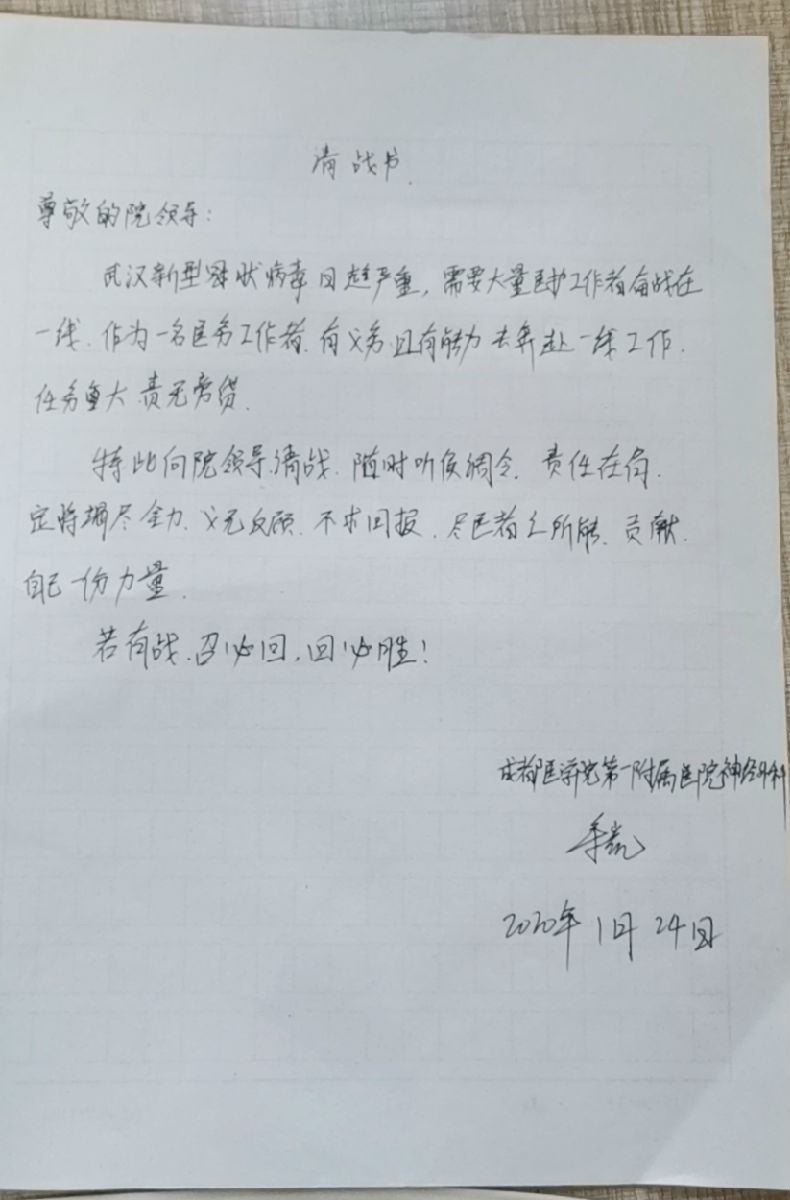 请战书
尊敬的院领导:
武汉新型冠状病毒日趋严重,需要大量医护工作者奋战在
一线.作为一名医务工作者.有义务且有能力去奔赴一线工作.
任务重大 责无旁贷.
特此向院领导请战.随时听侯调令.责任在肩.
定将竭尽全力.义无反顾.不求回报.尽医者之所能.贡献.
自己一份力量.
若有战.召必回,回必胜!
成都医学院第一附属医院神经外科
2020年1月24日